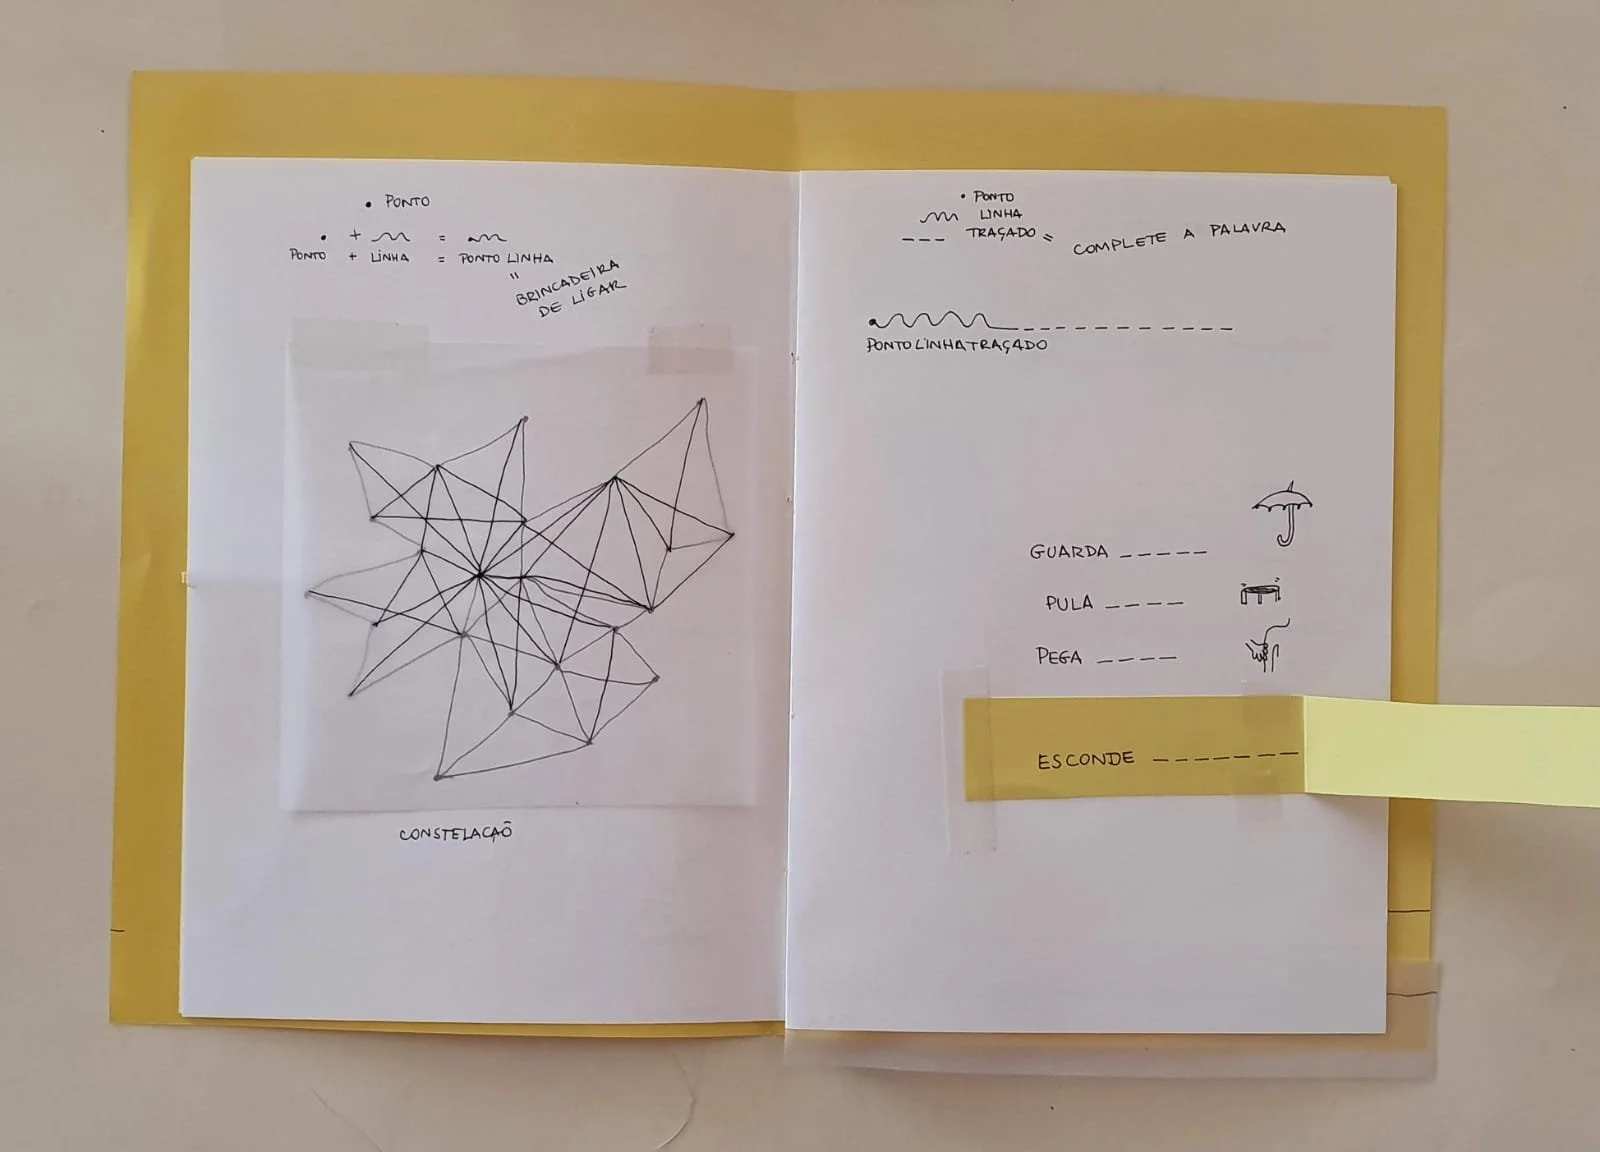 • PONTO
• + = 
PONTO + LINHA = PONTO LINHA
"
BRINCADEIRA
DE LIGAR
CONSTELAÇÕ
• PONTO
LINHA
--- TRAÇADO = COMPLETE A PALAVRA
PONTOLINHATRAÇADO
GUARDA _ _ _ _ _
PULA _ _ _ _
PEGA _ _ _ _
ESCONDE _ _ _ _ _ _ _